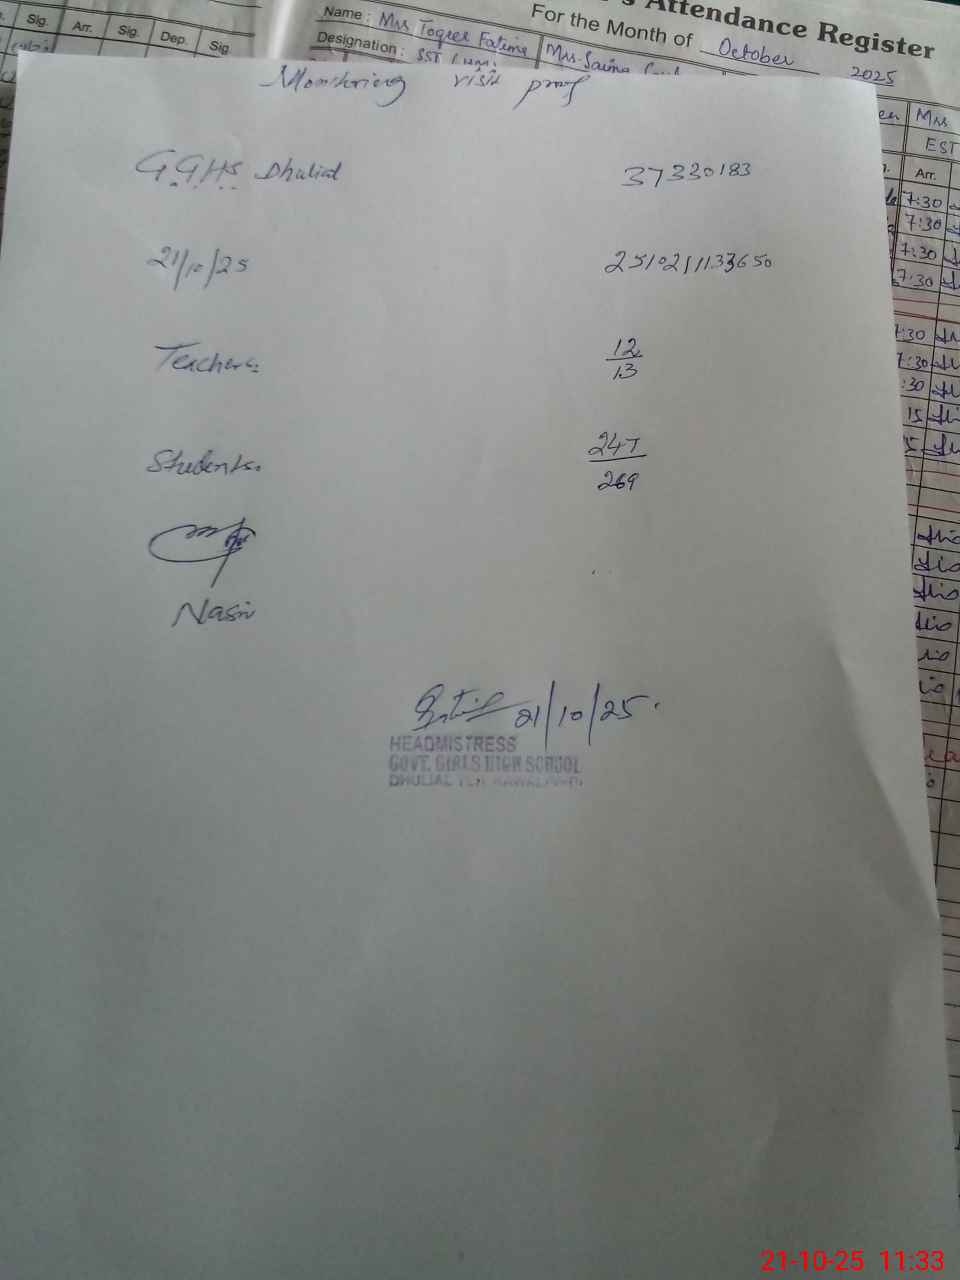 Sig. Arr. Sig. Dep. Sig.
's Attendance Register
Name : Mrs Toqeer Fatima
For the Month of October 2025
Designation : SST
Mrs. Saima
Mrs
EST
Arr.
7:30
7:30
7:30
7:30
7:30
7:30
:30
15
Monitoring visit proof
G.G.H.S. Dhulial 37330183
21/10/25 2510211133650
Teachers: 12/13
Students. 247/269
Nasir
21/10/25.
HEADMISTRESS
GOVT. GIRLS HIGH SCHOOL
DHULIAL TEH. RAWALPINDI
21-10-25 11:33